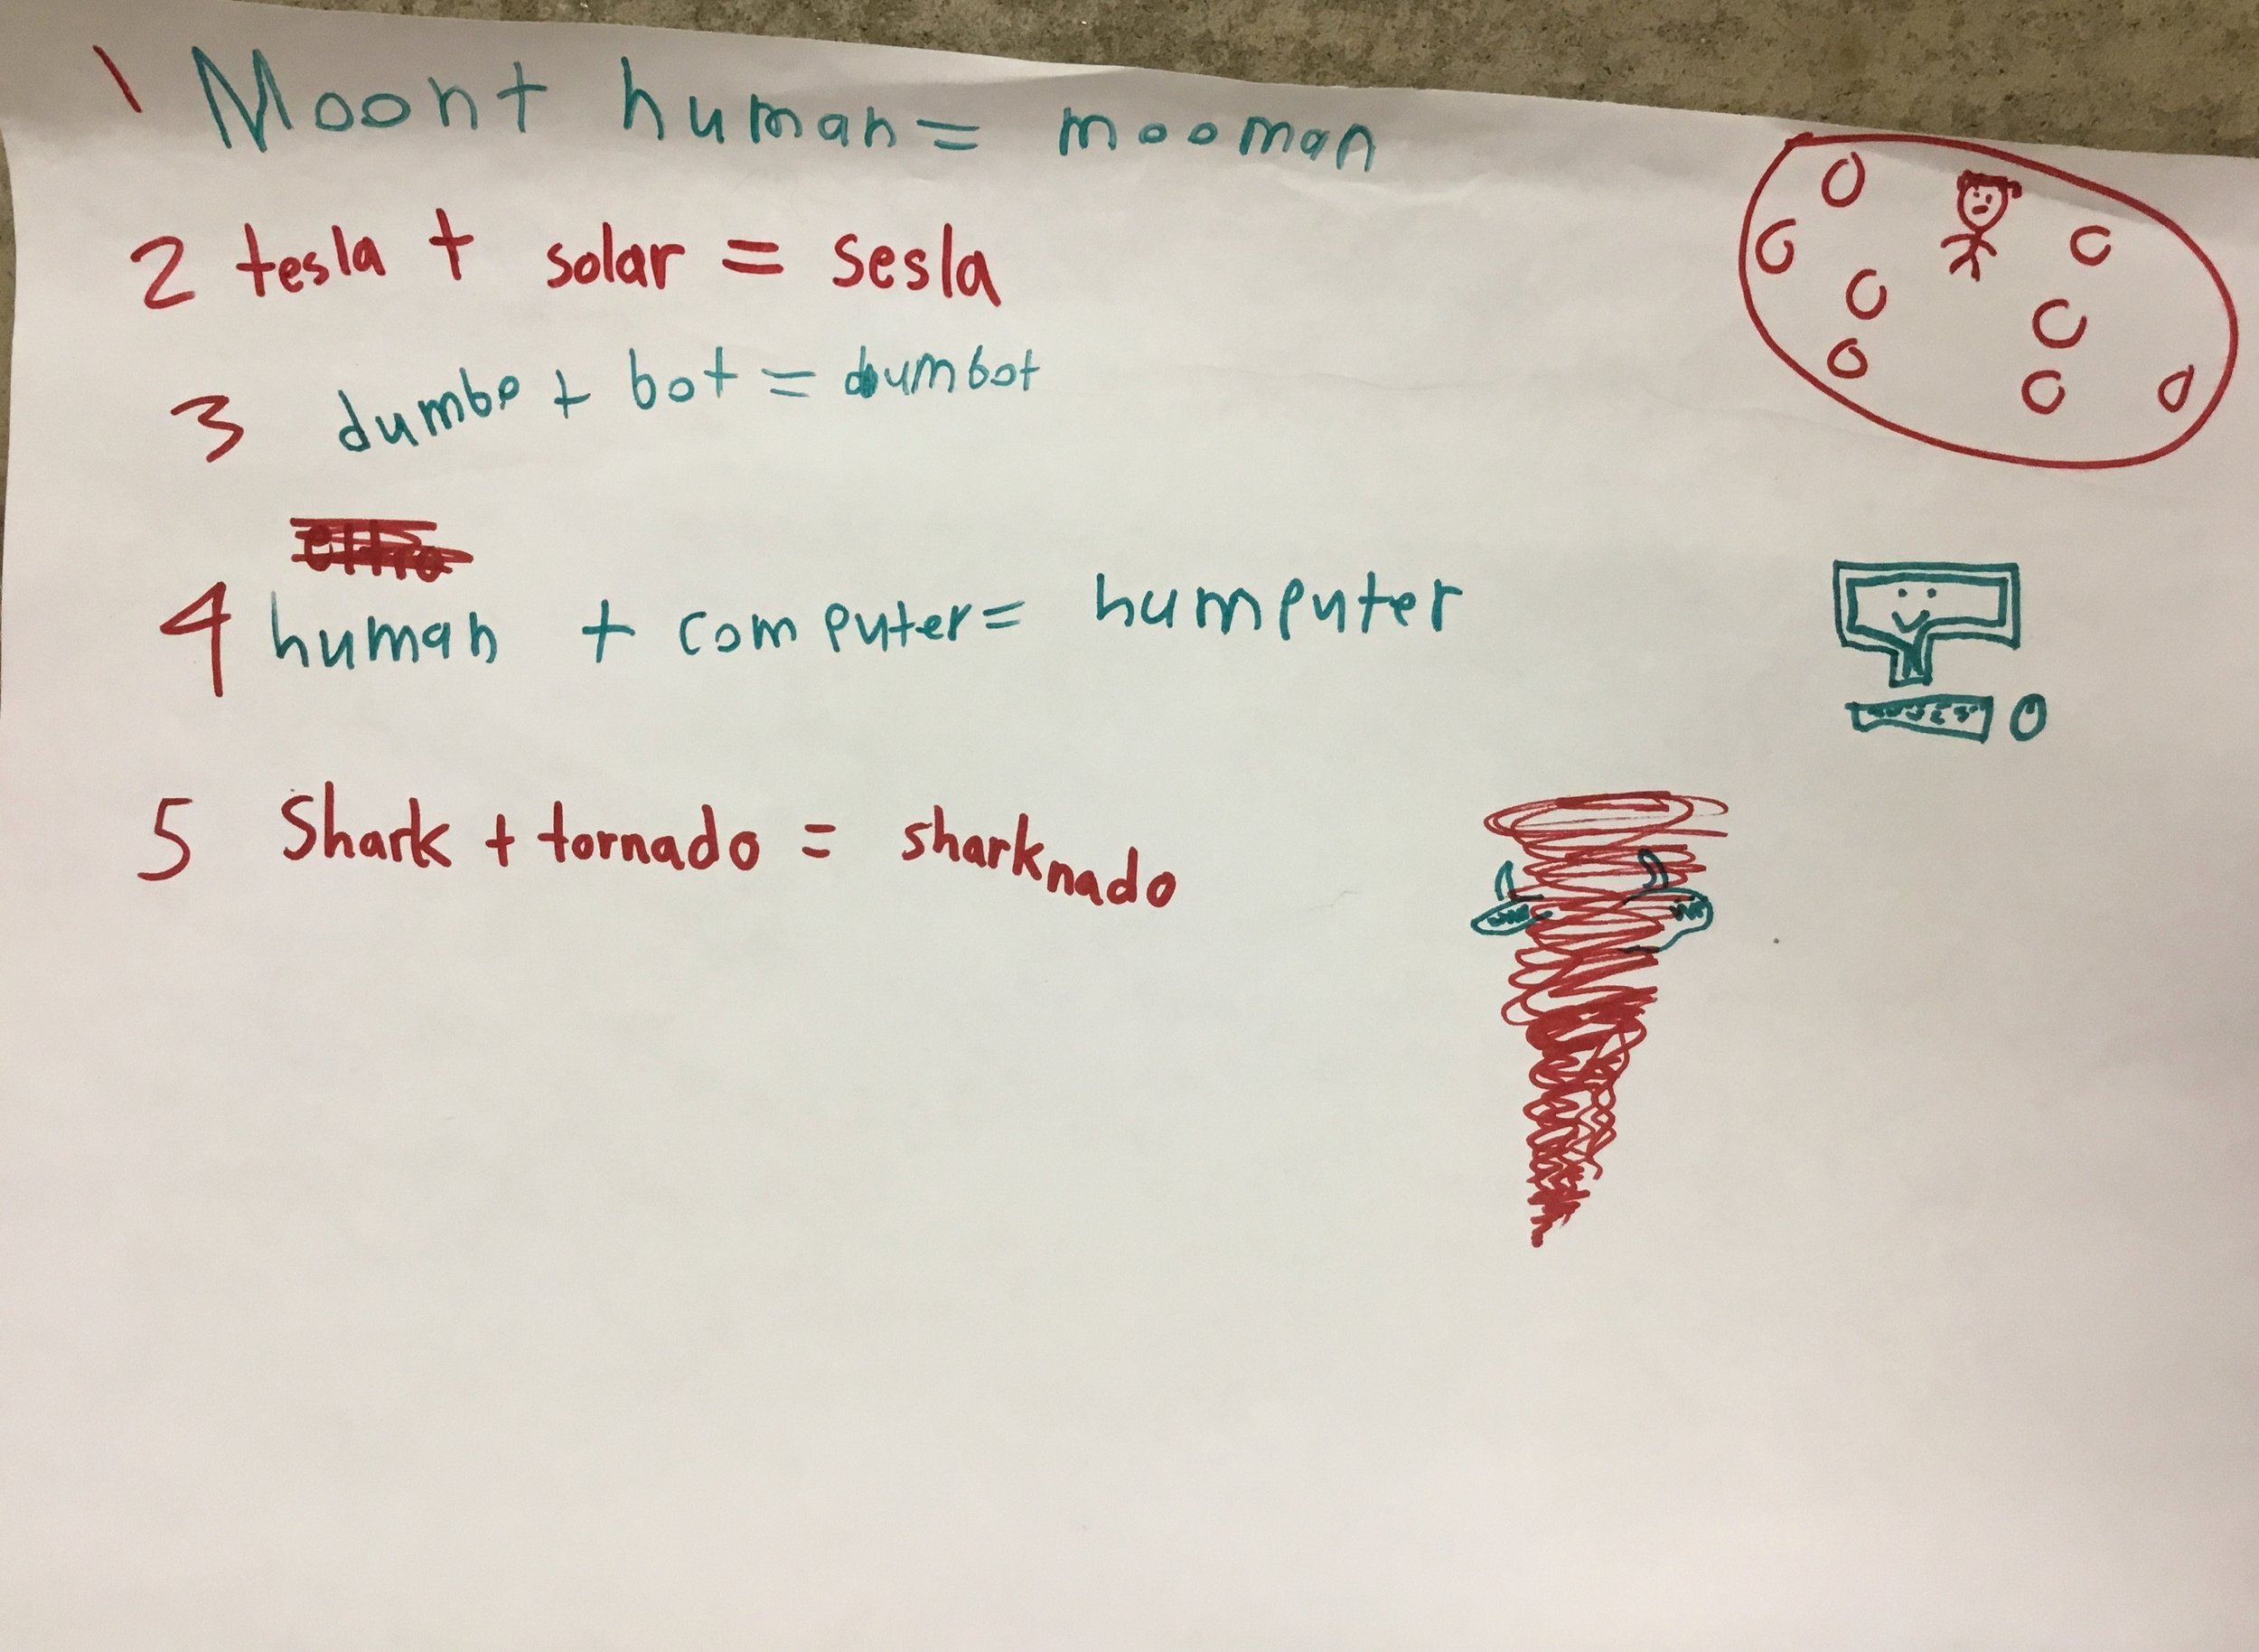 1 Moon + human = mooman
2 tesla + solar = sesla
3 dumbo + bot = dumbot
4 human + computer = humputer
5 Shark + tornado = sharknado